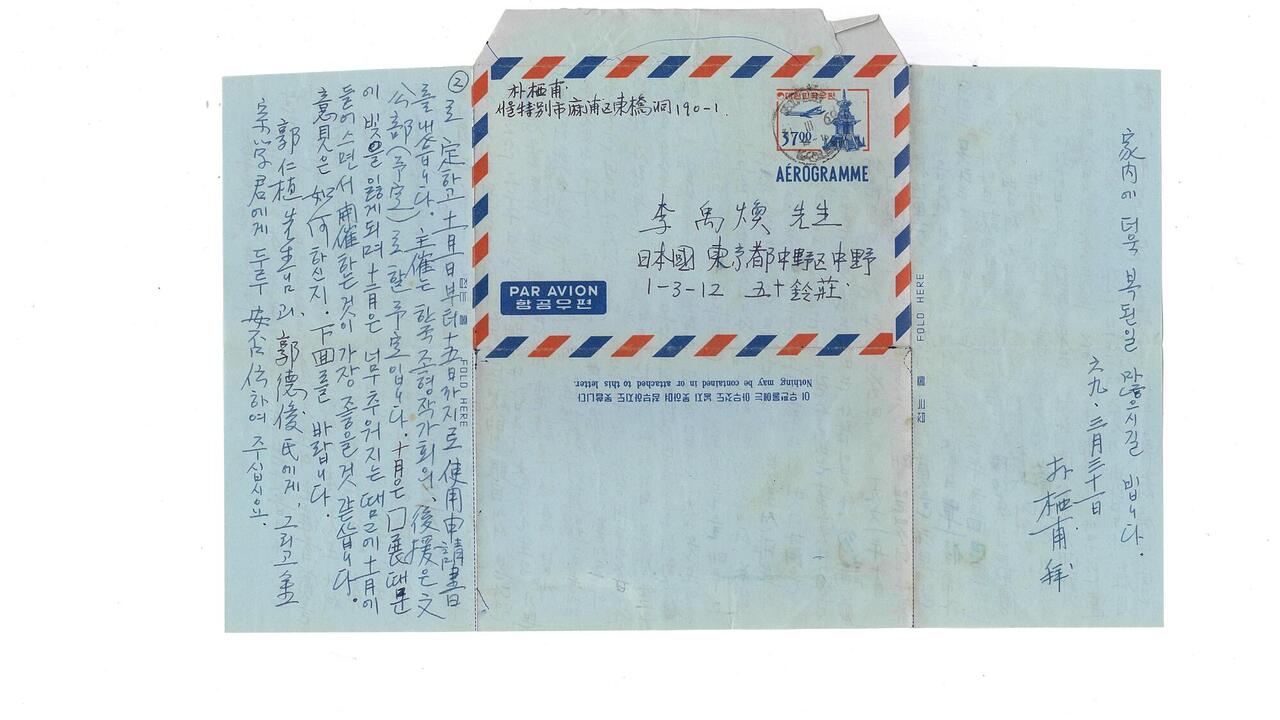 朴栖甫.
서울特別市麻浦区東橋洞 190-1.
대한민국우편
3700
AÉROGRAMME
李 禹 煥 先生
日本國 東京都 中野区 中野
1-3-12 五十鈴莊.
PAR AVION
항공우편
② 로 定하고 十一月五日부터 十五日까지로 使用申請書
를 냈습니다. 主催는 한국조형작가회의, 後援은 文
公部(予定)로 할 予定입니다. 十月은 口展때문
에 빛을 잃게되며 十二月은 너무 추워지는 땜에 十一月에
들어스면서 開催하는 것이 가장 좋을 것 같습니다.
意見은 如何하신지. 下回를 바랍니다.
郭仁植 先生님과, 郭德俊氏에게, 그리고 金
宗学君에게 두루 安否 伝하여 주십시요.
접는 곳
FOLD HERE
이 우편물에는 아무것도 넣지 못하며 첨부하지도 못합니다
Nothing may be contained in or attached to this letter.
FOLD HERE
접는 곳
家内에 더욱 복된일 많으시길 빕니다.
六九. 三月三十一日
朴栖甫 拜